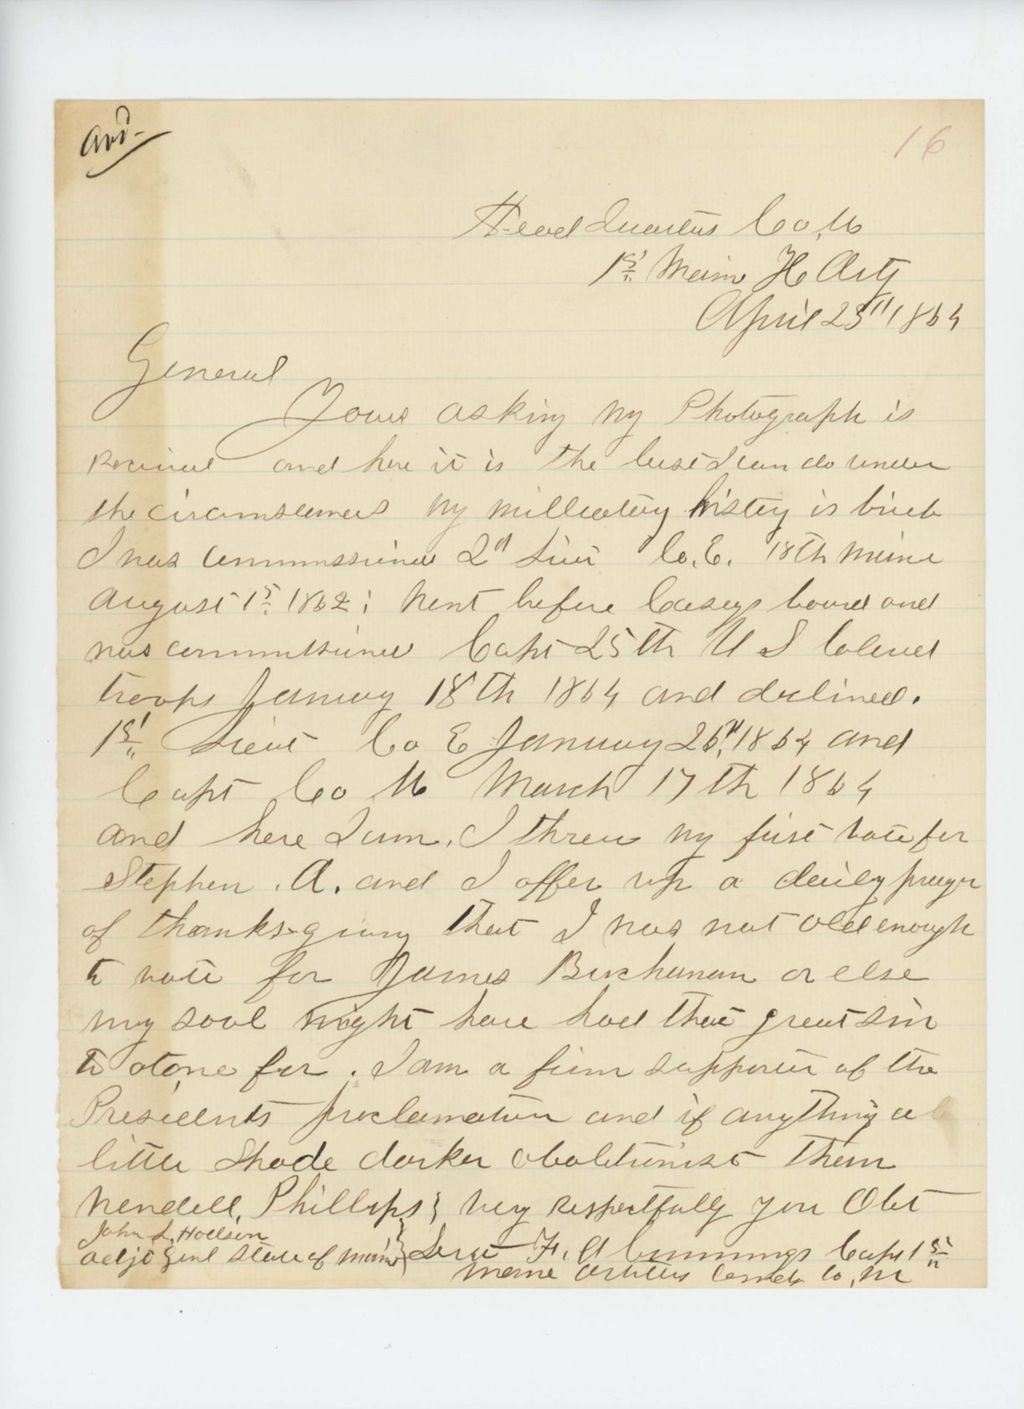 Ans-
16
Head Quarters Co, M
1st Maine H Arty
April 23rd 1864
General
Yours asking my Photograph is
Received and here it is the best I can do under
the circumstances my millietary history is brief
I was commissioned 2d Lieu Co, E. 18th Maine
August 1st 1862; Went before Caseys board and
was commissioned Capt 25th U S Colored
troops January 18th 1864 and declined.
1st Lieut Co E January 26th, 1864 and
Capt Co M March 17th 1864
and here I am, I threw my first vote for
Stephen, A. and I offer up a daily prayer
of thanks-giving that I was not old enough
to vote for James Buchanan or else
my soul might have had that great sin
to atone for. I am a firm supporter of the
Presidents proclamation and if anything a
little Shade darker abolitionist than
Wendell, Phillips; Very Respectfully your Obt
John L, Hodsdon
Adjt Genl State of Maine } Servt F. A Cummings Capt 1st
Maine Artillery Comdg Co, M